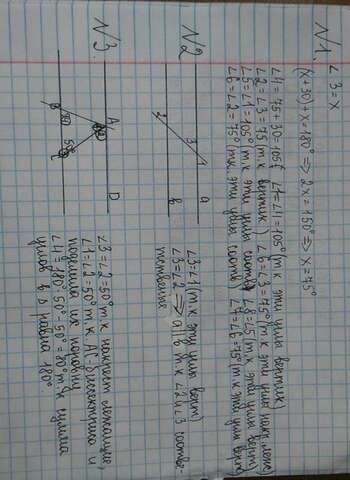 N1.
∠3=x
(x+30)+x=180° ⇒ 2x=150° ⇒ x=75°
∠4=75+30=105°; ∠1=∠4=105° (т.к эти углы вертик)
∠2=∠3=75° (т.к вертик.) ∠6=∠3=75° (т.к эти углы накр. леж.)
∠5=∠1=105° (т.к. эти углы соотв) ∠8=∠5 (т.к эти углы верт)
∠6=∠2=75° (т.к. эти углы соотв) ∠7=∠6=75° (т.к эти углы верт)
N2
1
3
2
a
b
∠3=∠1 (т.к эти углы верт)
∠3=∠2 ⇒ a||b т.к ∠2 и ∠3 соответ-
ственные
N3.
A
D
B
C
∠3=∠2=50° т.к накрест лежащие,
∠1=∠2=50° т.к AC-биссектриса и
поделила их пополам
∠4=180°-50°-50°=80° т.к сумма
углов в Δ равна 180°